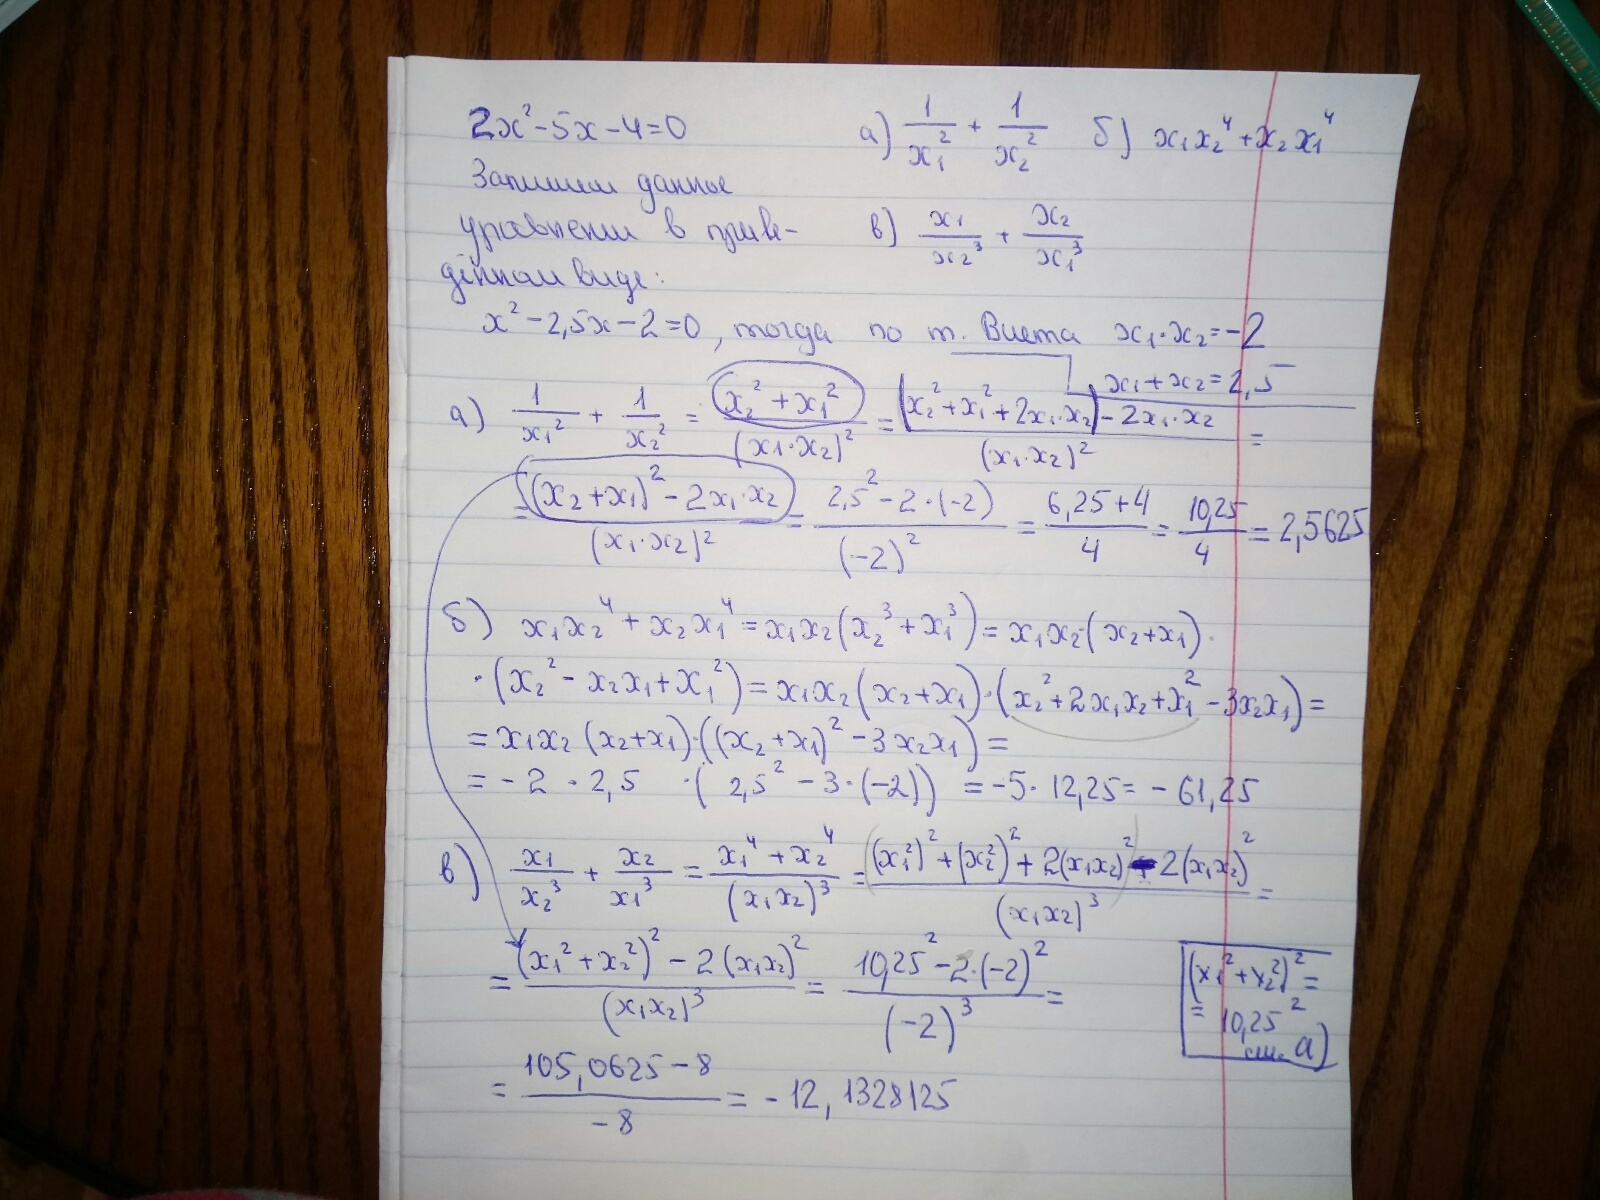 2x² - 5x - 4 = 0 а) 1/x₁² + 1/x₂² б) x₁x₂⁴ + x₂x₁⁴
Запишем данное
уравнении в приве-
дённом виде: в) x₁/x₂³ + x₂/x₁³
x² - 2,5x - 2 = 0, тогда по т. Виета x₁·x₂ = -2
x₁ + x₂ = 2,5
а) 1/x₁² + 1/x₂² = (x₂² + x₁²)/(x₁·x₂)² = ((x₂² + x₁² + 2x₁·x₂) - 2x₁·x₂)/(x₁·x₂)² =
= ((x₂ + x₁)² - 2x₁·x₂)/(x₁·x₂)² = (2,5² - 2·(-2))/(-2)² = (6,25 + 4)/4 = 10,25/4 = 2,5625
б) x₁x₂⁴ + x₂x₁⁴ = x₁x₂(x₂³ + x₁³) = x₁x₂·(x₂ + x₁)·
·(x₂² - x₂x₁ + x₁²) = x₁x₂(x₂ + x₁)·(x₂² + 2x₁x₂ + x₁² - 3x₂x₁) =
= x₁x₂(x₂ + x₁)·((x₂ + x₁)² - 3x₂x₁) =
= -2 · 2,5 · (2,5² - 3·(-2)) = -5 · 12,25 = -61,25
в) x₁/x₂³ + x₂/x₁³ = (x₁⁴ + x₂⁴)/(x₁x₂)³ = ((x₁²)² + (x₂²)² + 2(x₁x₂)² - 2(x₁x₂)²)/(x₁x₂)³ =
= ((x₁² + x₂²)² - 2(x₁x₂)²)/(x₁x₂)³ = (10,25² - 2·(-2)²)/(-2)³ =
(x₁² + x₂²)² =
= 10,25²
см. а)
= (105,0625 - 8)/-8 = -12,1328125